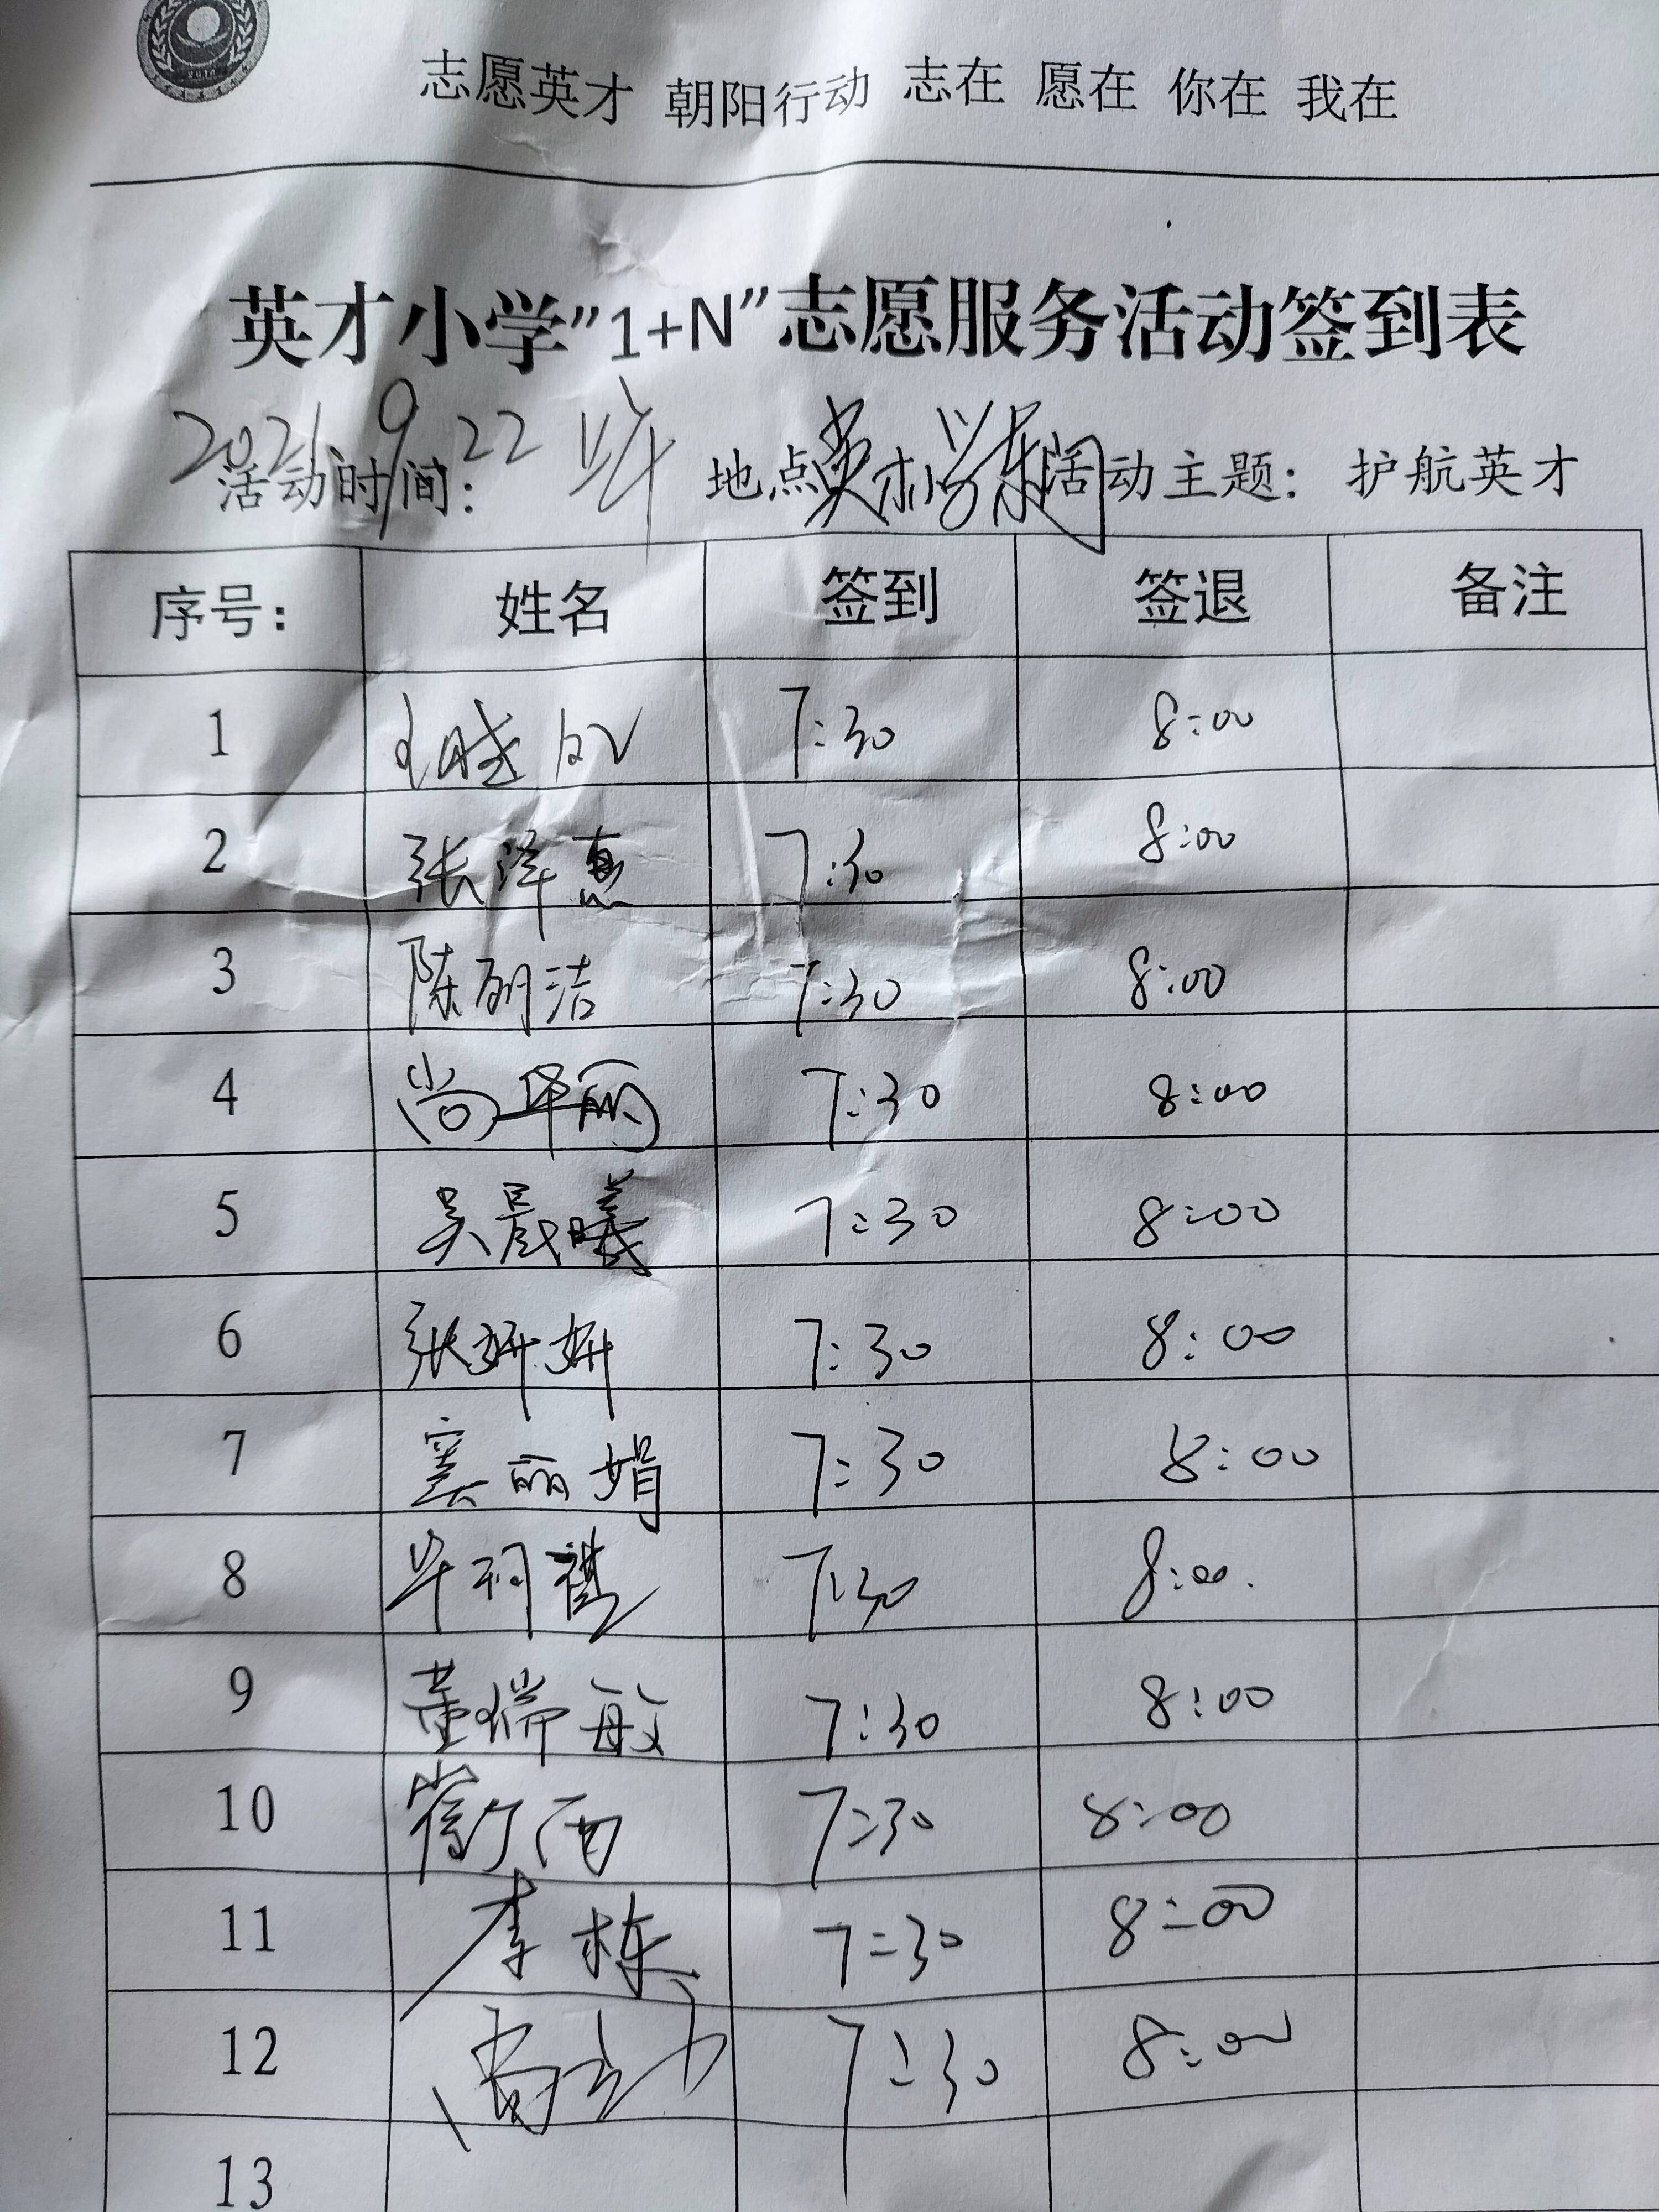 志愿英才 朝阳行动 志在 愿在 你在 我在
英才小学"1+N"志愿服务活动签到表
2021.9.22
活动时间: 地点 英才小学东门 活动主题: 护航英才
序号: 姓名 签到 签退 备注
1 7:30 8:00
2 张泽惠 7:30 8:00
3 陈丽洁 7:30 8:00
4 尚华丽 7:30 8:00
5 吴晨曦 7:30 8:00
6 张妍妍 7:30 8:00
7 窦丽娟 7:30 8:00
8 毕祠祺 7:30 8:00.
9 董瑞敏 7:30 8:00
10 7:30 8:00
11 李栋 7:30 8:00
12 7:30 8:00
13